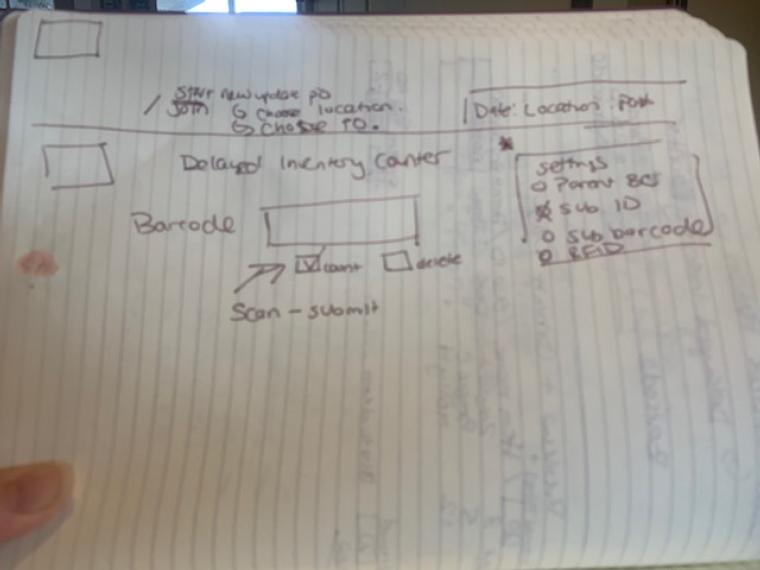 Start new update PO
Join ↳ Choose location.
↳ Choose PO.
Date: Location:
Delayed Inventory Counter
Settings
o Parent BC
x Sub ID
o Sub barcode
o RFID
Barcode
count delete
Scan - submit